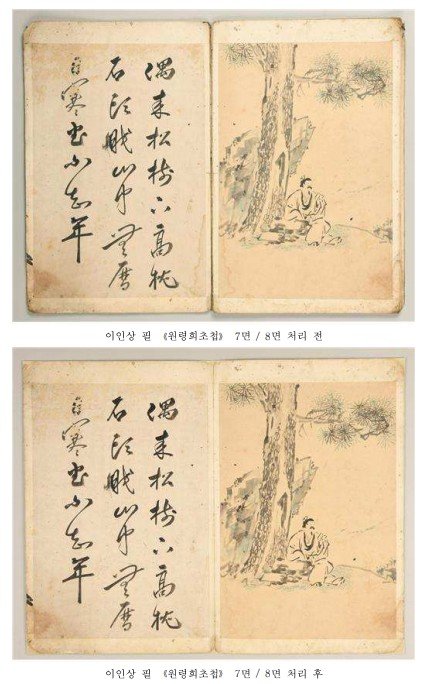 偶来松樹下高枕
石頭眠山中無曆
日寒盡不知年
이인상 필 《원령희초첩》 7면 / 8면 처리 전
偶来松樹下高枕
石頭眠山中無曆
日寒盡不知年
이인상 필 《원령희초첩》 7면 / 8면 처리 후